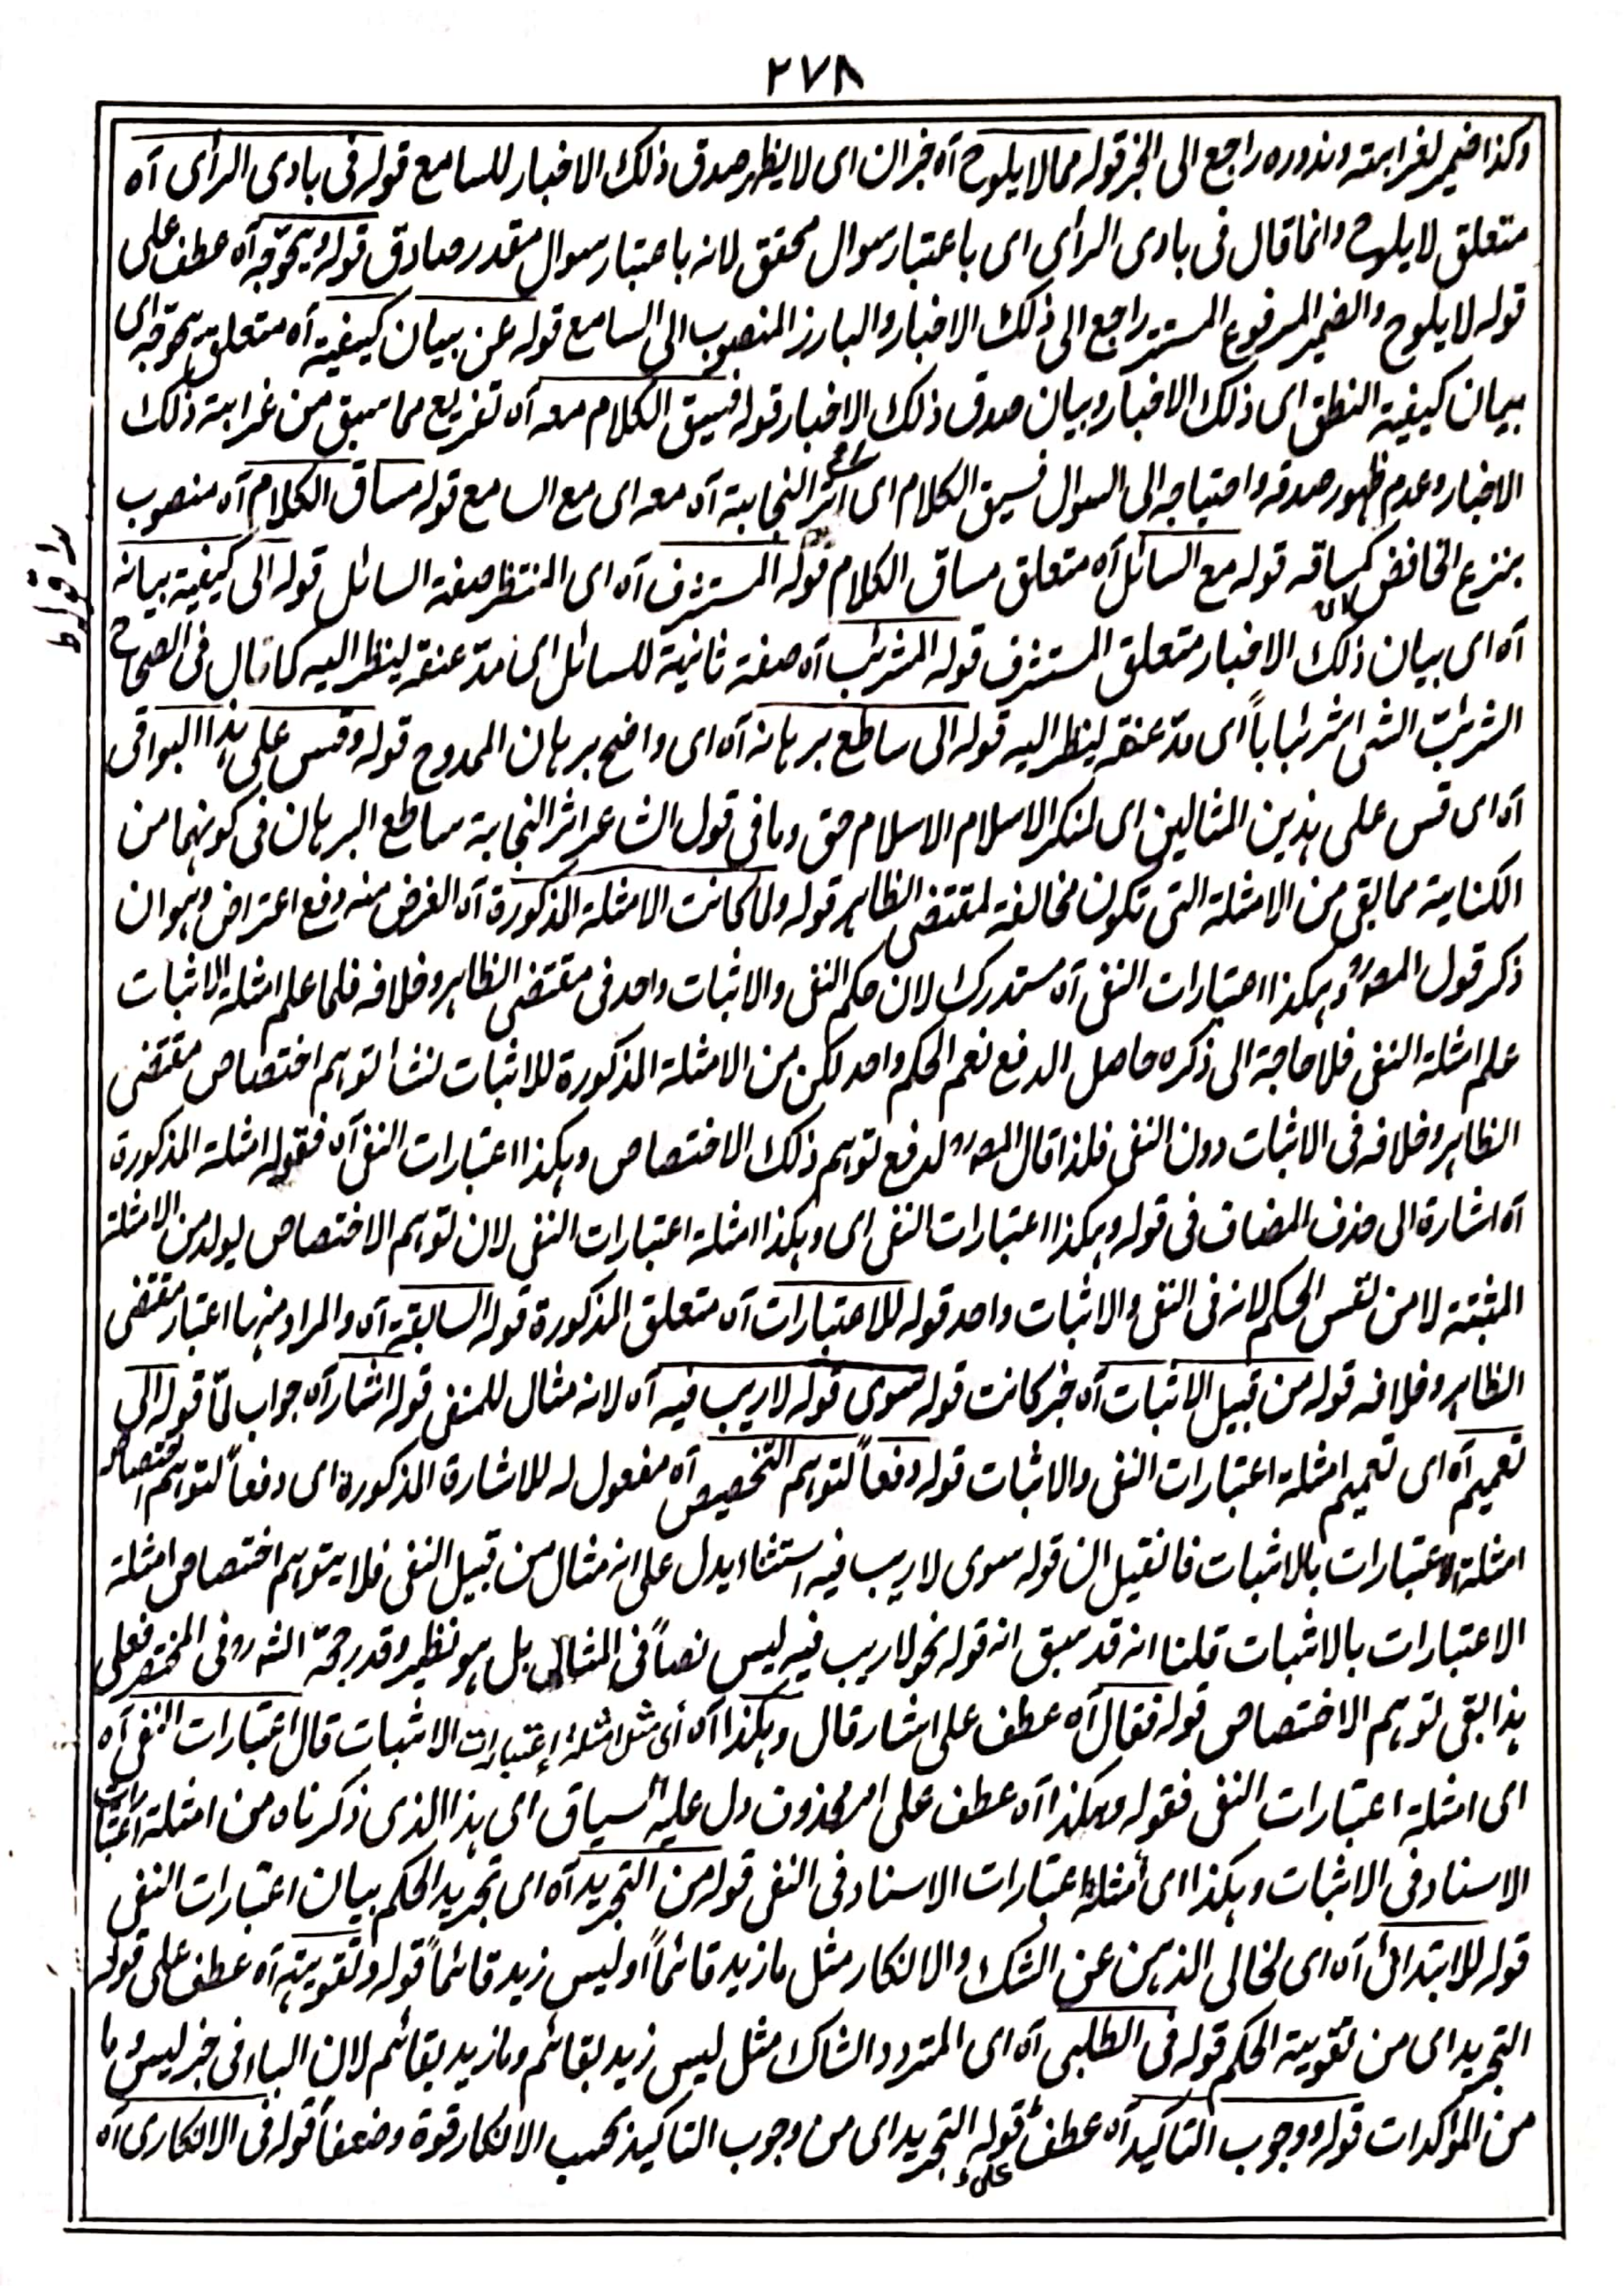 ۲۷۸
وكذا ضمير لغرابته وندوره راجع الى الخبر قوله مما لا يلوح آه خبر ان اى لا يظهر صدق ذلك الاخبار للسامع قوله فى بادى الرأى آه
متعلق لا يلوح وانما قال فى بادى الرأى اى باعتبار سوال محقق لانه باعتبار سوال مقدر صادق قوله ويحوّجه آه عطف على
قوله لا يلوح والضمير المرفوع المستتر راجع الى ذلك الاخبار والبارز المنصوب الى السامع قوله عن بيان كيفيته آه متعلق يحوّجه اى
بيان كيفية النطق اى ذلك الاخبار وبيان صدق ذلك الاخبار قوله فسيق الكلام معه آه تفريع مما سبق من غرابته ذلك
الاخبار وعدم ظهور صدقه واحتياجه الى السوال فسيق الكلام اى اثر النجابة آه معه اى مع السامع قوله مساق الكلام آه منصوب
بنزع الخافض كمساقه قوله مع السائل آه متعلق مساق الكلام قوله المستشرف آه اى المنتظر صفة السائل قوله الى كيفية بيانه
آه اى بيان ذلك الاخبار متعلق المستشرف قوله المشرئب آه صفة ثانية للسائل اى مدّ عنقه لينظر اليه كما قال فى الصحاح
اشرئبّ الشى اشرئباباً اى مدّ عنقه لينظر اليه قوله الى ساطع برهانه آه اى واضح برهان الممدوح قوله وقس على هذا البواقى
آه اى قس على هذين المثالين اى لمنكر الاسلام الاسلام حق وما فى قول الشاعر اثر النجابة ساطع البرهان فى كونهما من
الكناية مما بقى من الامثلة التى تكون مخالفة لمقتضى الظاهر قوله ولما كانت الامثلة المذكورة آه الغرض منه دفع اعتراض وهو ان
ذكر قول المصر وهكذا اعتبارات النفى آه مستدرك لان حكم النفى والاثبات واحد فى مقتضى الظاهر وخلافه فلما علم امثلة الاثبات
علم امثلة النفى فلا حاجة الى ذكره حاصل الدفع نعم الحكم واحد لكن من الامثلة المذكورة للاثبات نشأ توهم اختصاص مقتضى
الظاهر وخلافه فى الاثبات دون النفى فلذا قال المصر لدفع توهم ذلك الاختصاص وهكذا اعتبارات النفى آه فقوله امثلة المذكورة
آه اشارة الى حذف المضاف فى قوله وهكذا اعتبارات النفى اى وهكذا امثلة اعتبارات النفى لان توهم الاختصاص يولد من الامثلة
المثبتة لا من نفس الحكم لانه فى النفى والاثبات واحد قوله للاعتبارات آه متعلق المذكورة قوله السابقة آه والمراد منها اعتبار مقتضى
الظاهر وخلافه قوله من قبيل الاثبات آه خبر كانت قوله سوى قوله لاريب فيه آه لانه مثال للنفى قوله اشار آه جواب لمّا قوله الى
تعميم آه اى تعميم امثلة اعتبارات النفى والاثبات قوله دفعاً لتوهم التخصيص آه مفعول له للاشارة المذكورة اى دفعاً لتوهم اختصاص
امثلة الاعتبارات بالاثبات فان قيل ان قوله سوى لاريب فيه استثناء يدل على انه مثال من قبيل النفى فلا يتوهم اختصاص امثلة
الاعتبارات بالاثبات قلنا انه قد سبق انه قوله نحو لاريب فيه ليس نصاً فى المثال بل هو نظير وقد رجحّه الشر فى المختصر فعلى
هذا بقى توهم الاختصاص قوله فقال آه عطف على اشار قال وهكذا آه اى مثل امثلة اعتبارات الاثبات قال اعتبارات النفى آه
اى امثلة اعتبارات النفى فقوله وهكذا آه عطف على امر محذوف دل عليه السياق اى هذا الذى ذكرناه من امثلة اعتبارات
الاسناد فى الاثبات وهكذا اى أمثلة اعتبارات الاسناد فى النفى قوله من التجريد آه اى تجريد الحكم بيان اعتبارات النفى
قوله للابتدائى آه اى لخالى الذهن عن الشك والانكار مثل ما زيد قائماً او ليس زيد قائماً قوله وتقويته آه عطف على قوله
التجريد اى من تقوية الحكم قوله فى الطلبى آه اى المتردد الشاك مثل ليس زيد بقائم وما زيد بقائم لان الباء فى خبر ليس وما
من المؤكدات قوله ووجوب التاكيد آه عطف على قوله التجريد اى من وجوب التاكيد بحسب الانكار قوة وضعفاً قوله فى الانكارى آه